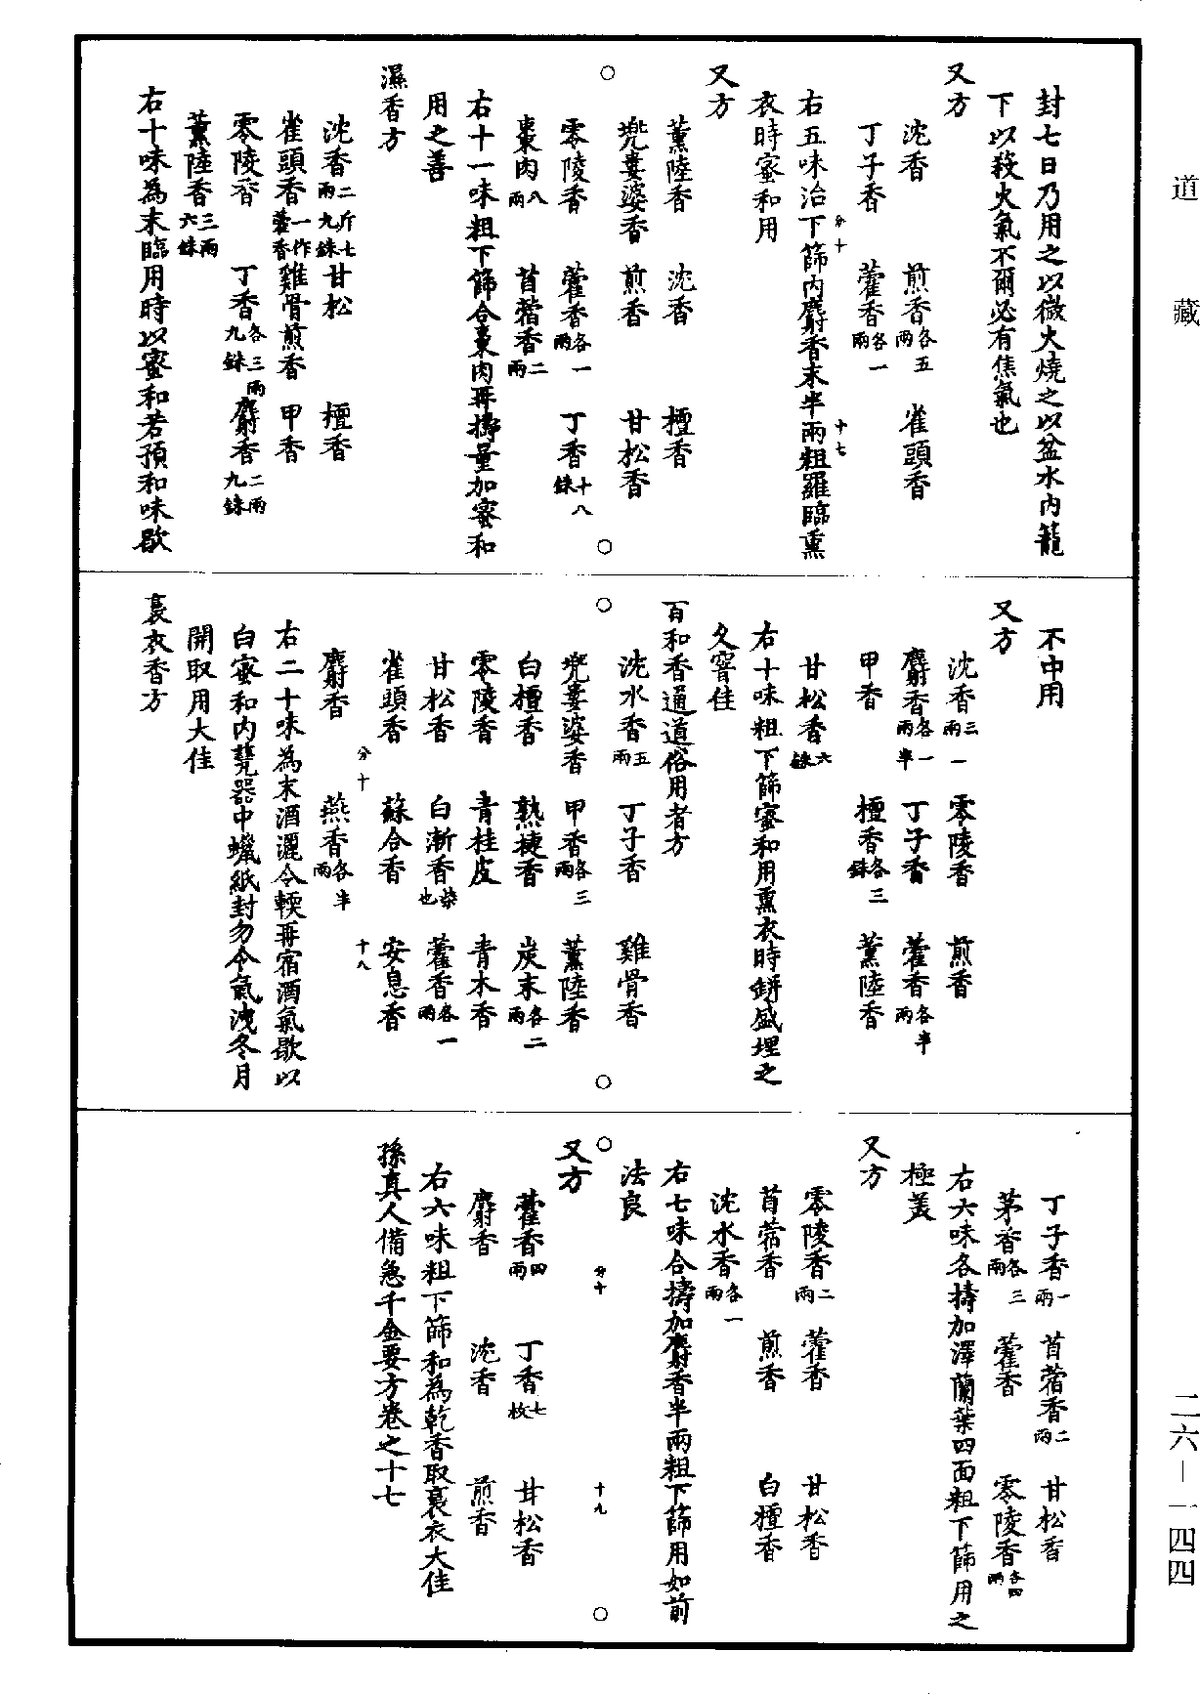 道藏
封七日乃用之以微火燒之以盆水內籠
下以殺火氣不爾必有焦氣也
又方
沈香 煎香各五兩 雀頭香
丁子香 藿香各一兩
分十 十七
右五味治下篩內麝香末半兩粗羅臨薰
衣時蜜和用
又方
薰陸香 沈香 檀香
兜婁婆香 煎香 甘松香
零陵香 藿香各一兩 丁香十八銖
棗肉八兩 苜蓿香二兩
右十一味粗下篩合棗肉再擣量加蜜和
用之善
濕香方
沈香二斤七兩九銖 甘松 檀香
雀頭香一作藿香 雞骨煎香 甲香
零陵香 丁香各三兩九銖 麝香二兩九銖
薰陸香三兩六銖
右十味為末臨用時以蜜和若預和味歇
不中用
又方
沈香三兩一 零陵香 煎香
麝香各一兩半 丁子香 藿香各半兩
甲香 檀香各三銖 薰陸香
甘松香六銖
右十味粗下篩蜜和用薰衣時鉼盛埋之
久窨佳
百和香通道俗用者方
沈水香五兩 丁子香 雞骨香
兜婁婆香 甲香各三兩 薰陸香
白檀香 熟捷香 炭末各二兩
零陵香 青桂皮 青木香
甘松香 白漸香柴也 藿香各一兩
雀頭香 蘇合香 安息香
分十 十八
麝香 燕香各半兩
右二十味為末酒灑令輭再宿酒氣歇以
白蜜和內甆器中蠟紙封勿令氣洩冬月
開取用大佳
裛衣香方
丁子香一兩 苜蓿香二兩 甘松香
茅香各三兩 藿香 零陵香各四兩
右六味各擣加澤蘭葉四面粗下篩用之
極美
又方
零陵香二兩 藿香 甘松香
苜蓿香 煎香 白檀香
沈水香各一兩
右七味合擣加麝香半兩粗下篩用如前
法良
分十 十九
又方
藿香四兩 丁香七枚 甘松香
麝香 沈香 煎香
右六味粗下篩和為乾香取裛衣大佳
孫真人備急千金要方卷之十七
二六－一四四